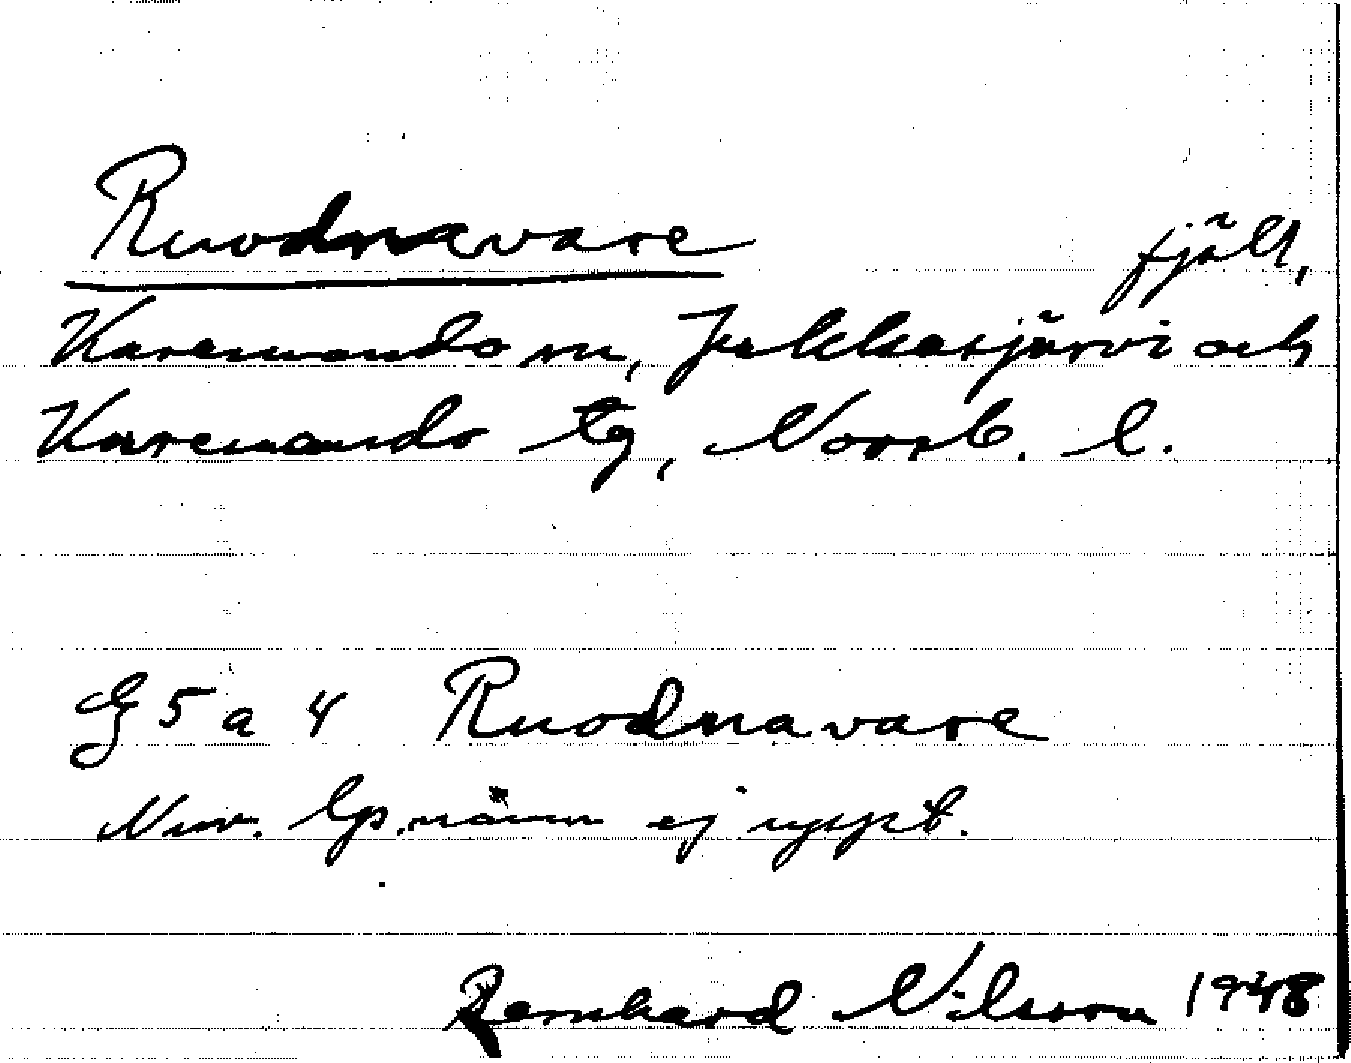 Ruodnavare fjäll,
Karesuando sn, Jukkasjärvi och
Karesuando tg, Norrb. l.
G 5 a 4 Ruodnavare
Nuv. lp. nämn ej uppt.
Bernhard Nilsson 1948